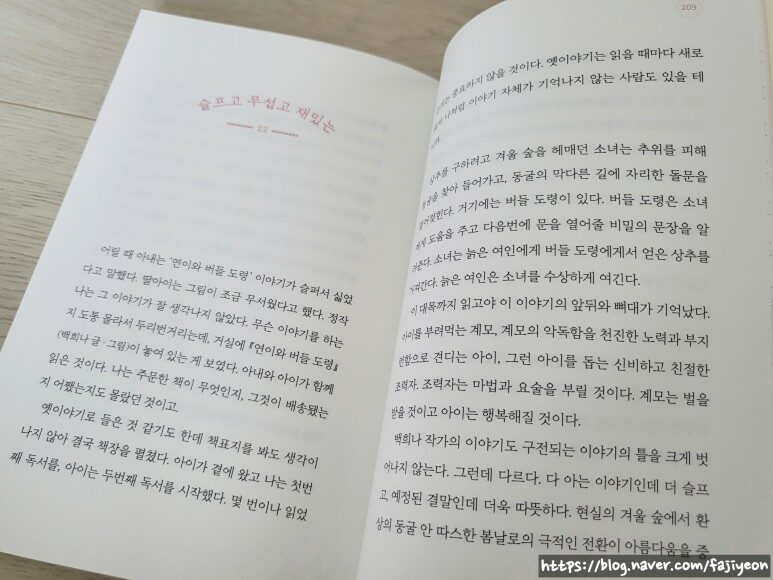 슬프고 무섭고 재밌는
어릴 때 아내는 '연이와 버들 도령' 이야기가 슬퍼서 싫었
다고 말했다. 딸아이는 그림이 조금 무서웠다고 했다. 정작
나는 그 이야기가 잘 생각나지 않았다. 무슨 이야기를 하는
지 도통 몰라서 두리번거리는데, 거실에 『연이와 버들 도령』
(백희나 글·그림)이 놓여 있는 게 보였다. 아내와 아이가 함께
읽은 것이다. 나는 주문한 책이 무엇인지, 그것이 배송됐는
지 어쨌는지도 몰랐던 것이고.
옛이야기로 들은 것 같기도 한데 책표지를 봐도 생각이
나지 않아 결국 책장을 펼쳤다. 아이가 곁에 왔고 나는 첫번
째 독서를, 아이는 두번째 독서를 시작했다. 몇 번이나 읽었
209
중요하지 않을 것이다. 옛이야기는 읽을 때마다 새로
나처럼 이야기 자체가 기억나지 않는 사람도 있을 테
상추를 구하려고 겨울 숲을 헤매던 소녀는 추위를 피해
동굴을 찾아 들어가고, 동굴의 막다른 길에 자리한 돌문을
열어젖힌다. 거기에는 버들 도령이 있다. 버들 도령은 소녀
에게 도움을 주고 다음번에 문을 열어줄 비밀의 문장을 알
려준다. 소녀는 늙은 여인에게 버들 도령에게서 얻은 상추를
가져간다. 늙은 여인은 소녀를 수상하게 여긴다.
이 대목까지 읽고야 이 이야기의 앞뒤와 뼈대가 기억났다.
아이를 부려먹는 계모, 계모의 악독함을 천진한 노력과 부지
런함으로 견디는 아이, 그런 아이를 돕는 신비하고 친절한
조력자. 조력자는 마법과 요술을 부릴 것이다. 계모는 벌을
받을 것이고 아이는 행복해질 것이다.
백희나 작가의 이야기도 구전되는 이야기의 틀을 크게 벗
어나지 않는다. 그런데 다르다. 다 아는 이야기인데 더 슬프
고, 예정된 결말인데 더욱 따뜻하다. 현실의 겨울 숲에서 환
상의 동굴 안 따스한 봄날로의 극적인 전환이 아름다움을 증
https://blog.naver.com/fajiyeon